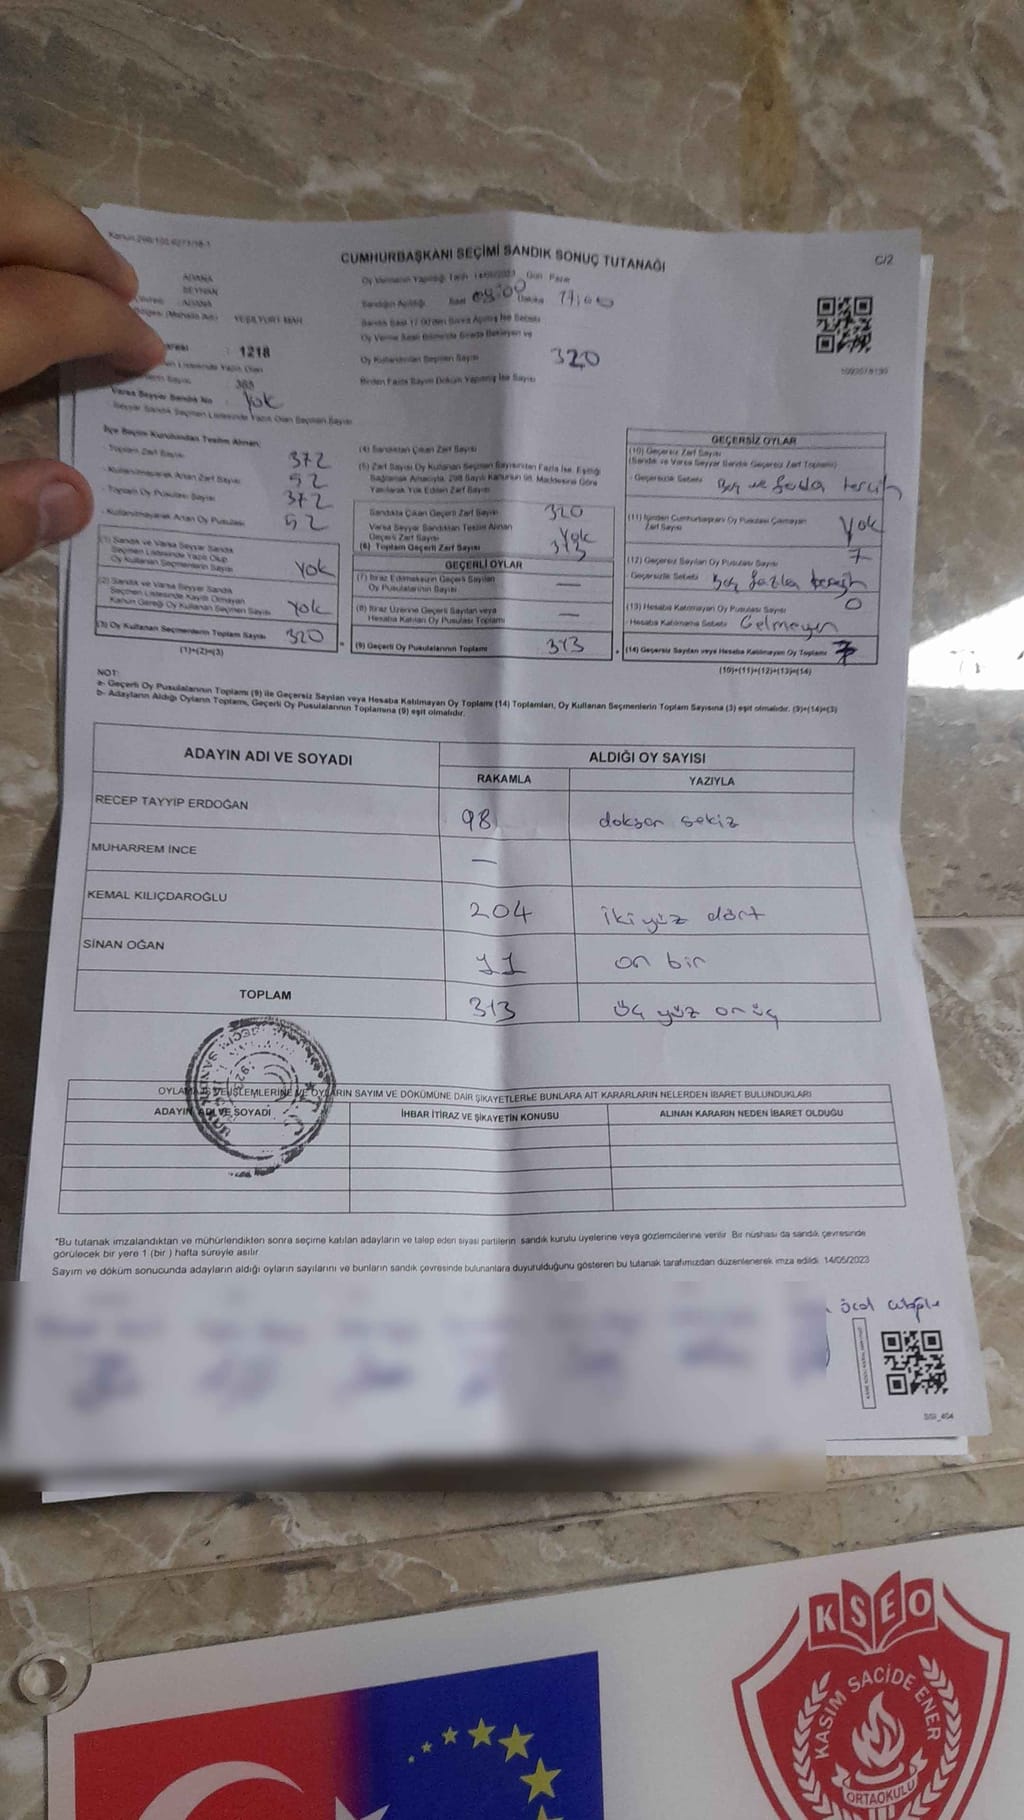 Kanun 298/105.6271/18-1
CUMHURBAŞKANI SEÇİMİ SANDIK SONUÇ TUTANAĞI
C/2
ADANA
SEYHAN
ADANA
(Mahalle Adı) YEŞİLYURT MAH
1218
Listesinde Yazılı Olan
385
Varsa Seyyar Sandık No Yok
Seyyar Sandık Seçmen Listesinde Yazılı Olan Seçmen Sayısı
Oy Vermenin Yapıldığı Tarih 14/05/2023 Gün Pazar
Sandığın Açıldığı Saat 08:00 Dakika 17:00
Oy Kullandırılan Seçmen Sayısı 320
Birden Fazla Sayım Döküm Yapılmış İse Sayısı
İlçe Seçim Kurulundan Teslim Alınan;
- Toplam Zarf Sayısı 372
- Kullanılmayarak Artan Zarf Sayısı 52
- Toplam Oy Pusulası Sayısı 372
- Kullanılmayarak Artan Oy Pusulası 52
(1) Sandık ve Varsa Seyyar Sandık
Seçmen Listesinde Yazılı Olup
Oy Kullanan Seçmenlerin Sayısı Yok
(2) Sandık ve Varsa Seyyar Sandık
Seçmen Listesinde Kayıtlı Olmayan
Kanun Gereği Oy Kullanan Seçmen Sayısı Yok
(3) Oy Kullanan Seçmenlerin Toplam Sayısı 320
(1)+(2)=(3)
(4) Sandıktan Çıkan Zarf Sayısı
(5) Zarf Sayısı Oy Kullanan Seçmen Sayısından Fazla İse, Eşitliği
Sağlamak Amacıyla, 298 Sayılı Kanunun 98. Maddesine Göre
Yakılarak Yok Edilen Zarf Sayısı
Sandıkta Çıkan Geçerli Zarf Sayısı 320
Varsa Seyyar Sandıktan Teslim Alınan
Geçerli Zarf Sayısı Yok
(6) Toplam Geçerli Zarf Sayısı 313
GEÇERLİ OYLAR
(7) İtiraz Edilmeksizin Geçerli Sayılan
Oy Pusulalarının Sayısı —
(8) İtiraz Üzerine Geçerli Sayılan veya
Hesaba Katılan Oy Pusulaları Toplamı —
(9) Geçerli Oy Pusulalarının Toplamı 313
GEÇERSİZ OYLAR
(10) Geçersiz Zarf Sayısı
(Sandık ve Varsa Seyyar Sandık Geçersiz Zarf Toplamı)
- Geçersizlik Sebebi Boş ve fazla tercih
(11) İçinden Cumhurbaşkanı Oy Pusulası Çıkmayan
Zarf Sayısı Yok
(12) Geçersiz Sayılan Oy Pusulası Sayısı 7
- Geçersizlik Sebebi Boş fazla tercih
(13) Hesaba Katılmayan Oy Pusulası Sayısı 0
- Hesaba Katılmama Sebebi Gelmeyen
(14) Geçersiz Sayılan veya Hesaba Katılmayan Oy Toplamı 7
(10)+(11)+(12)+(13)=(14)
NOT:
a- Geçerli Oy Pusulalarının Toplamı (9) ile Geçersiz Sayılan veya Hesaba Katılmayan Oy Toplamı (14) Toplamları, Oy Kullanan Seçmenlerin Toplam Sayısına (3) eşit olmalıdır. (9)+(14)=(3)
b- Adayların Aldığı Oyların Toplamı, Geçerli Oy Pusulalarının Toplamına (9) eşit olmalıdır.
ADAYIN ADI VE SOYADI
ALDIĞI OY SAYISI
RAKAMLA YAZIYLA
RECEP TAYYİP ERDOĞAN 98 doksan sekiz
MUHARREM İNCE —
KEMAL KILIÇDAROĞLU 204 iki yüz dört
SİNAN OĞAN 11 on bir
TOPLAM 313 üç yüz onüç
OYLAMA VE İŞLEMLERİNE VE OYLARIN SAYIM VE DÖKÜMÜNE DAİR ŞİKAYETLERLE BUNLARA AİT KARARLARIN NELERDEN İBARET BULUNDUKLARI
ADAYIN ADI VE SOYADI İHBAR İTİRAZ VE ŞİKAYETİN KONUSU ALINAN KARARIN NEDEN İBARET OLDUĞU
*Bu tutanak imzalandıktan ve mühürlendikten sonra seçime katılan adayların ve talep eden siyasi partilerin sandık kurulu üyelerine veya gözlemcilerine verilir. Bir nüshası da sandık çevresinde
görülecek bir yere 1 (bir) hafta süreyle asılır.
Sayım ve döküm sonucunda adayların aldığı oyların sayılarını ve bunların sandık çevresinde bulunanlara duyurulduğunu gösteren bu tutanak tarafımızdan düzenlenerek imza edildi. 14/05/2023
SSI_404
KSEO
KASIM SACİDE ENER
ORTAOKULU